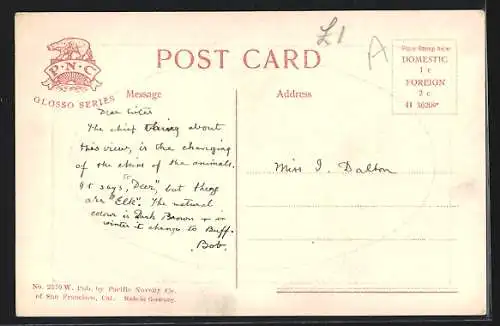 £1
A
P·N·C
GLOSSO SERIES
POST CARD
Place Stamp here
DOMESTIC
1 c
FOREIGN
2 c
Message
Address
Dear Sister
The chief thing about
this view, is the changing
of the skins of the animals.
It says, "Deer", but they
are "Elk". The natural
colour is Dark Brown & in
winter it change to Buff.
Bob.
Miss I. Dalton
No. 2370 W. Pub. by Pacific Novelty Co.
of San Francisco, Cal. Made in Germany.